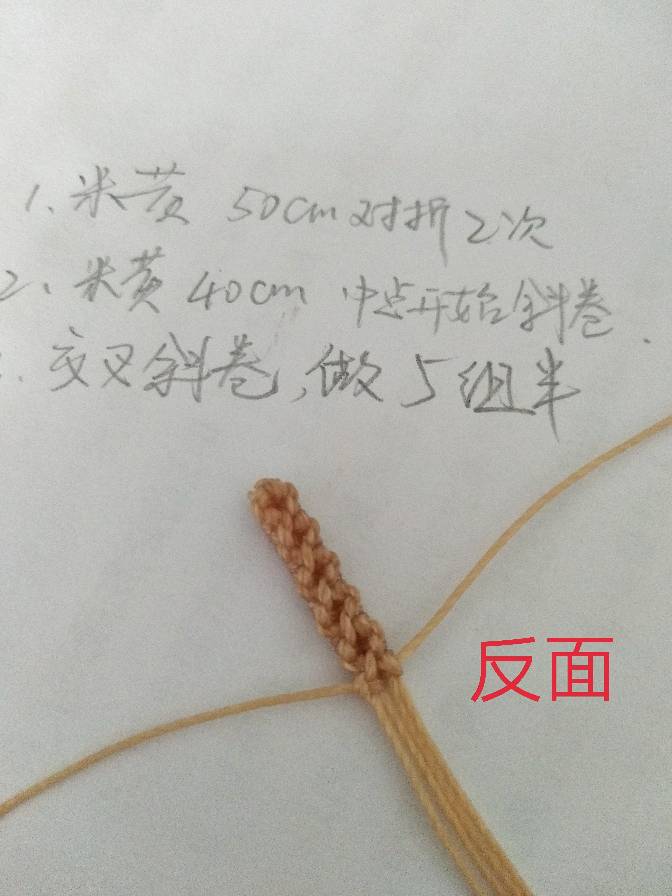 1、米黄 50cm 对折2次
2、米黄 40cm 中点开始斜卷.
交叉斜卷,做5组半
反面